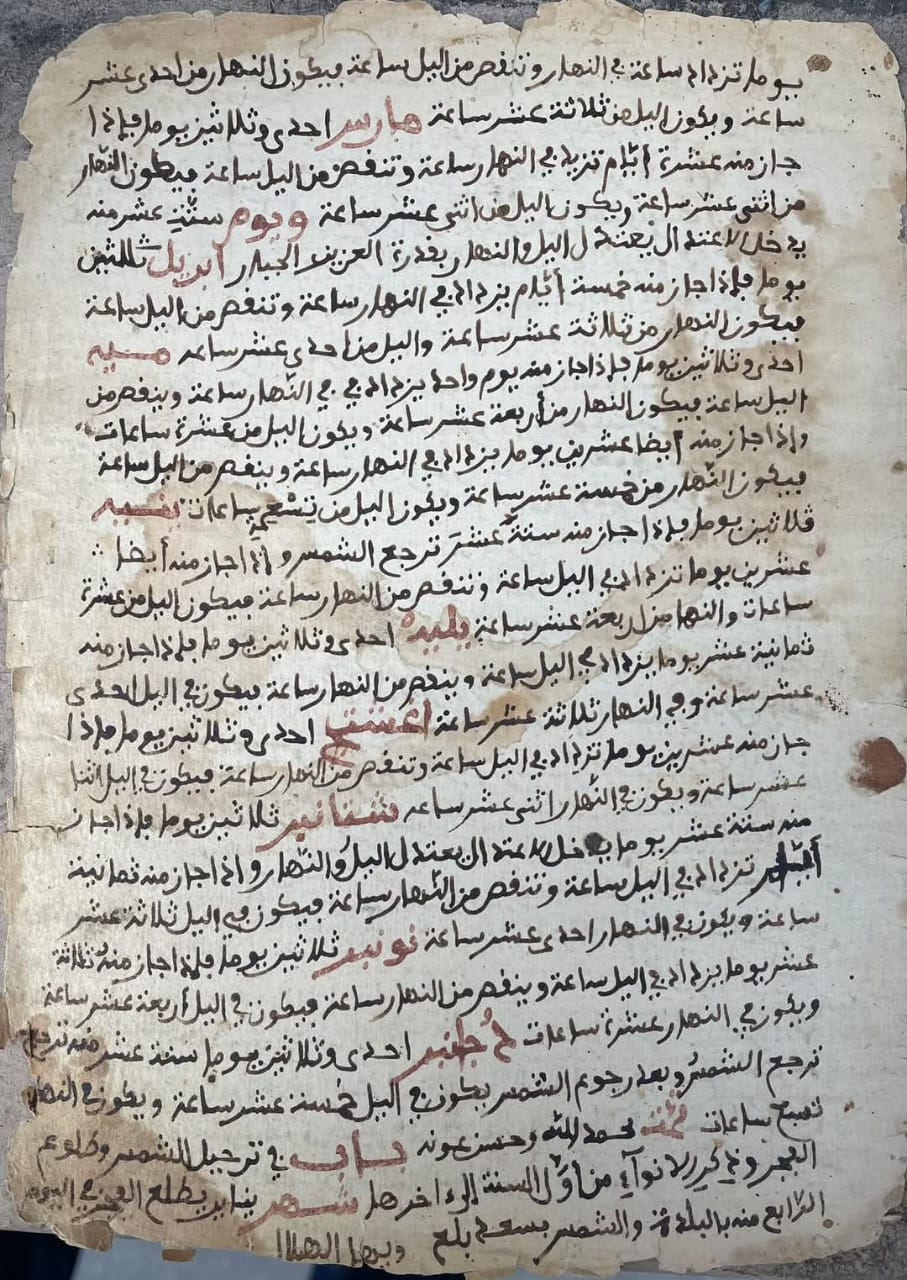 يوما تزداد ساعة في النهار وتنفص من اليل ساعة فيكون النهار من احدى عشر
ساعة ويكون اليل من ثلاثة عشر ساعة مارس احدى وثلاثين يوما فإذا
جاز منه عشرة أيام تزيد في النهار ساعة وتنفص من اليل ساعة فيكون النهار
من اثنى عشر ساعة ويكون اليل من اثنى عشر ساعة ويوم ستة عشر منه
يدخل الاعتدال يعتدل اليل والنهار بفدرة العزيز الجبار ابريل ثلاثين
يوما فإذا جاز منه خمسة أيام يزداد في النهار ساعة وتنفص من اليل ساعة
فيكون النهار من ثلاثة عشر ساعة واليل من احدى عشر ساعة مـيـه
احدى وثلاثين يوما فإذا جاز منه يوم واحد يزداد في في النهار ساعة وينفص من
اليل ساعة فيكون النهار من أربعة عشر ساعة ويكون اليل من عشرة ساعات
واذا جاز منه أيضا عشرين يوما يزداد في النهار ساعة وينفص من اليل ساعة
فيكون النهار من خمسة عشر ساعة ويكون اليل من تسعة ساعات
ثلاثين يوما فإذا جاز منه ستة عشر ترجع الشمس واذا جاز منه أيضا
عشرين يوما تزداد في اليل ساعة وتنفص من النهار ساعة فيكون اليل من عشرة
ساعات والنهار من اربعة عشر ساعة يليه احدى وثلاثين يوما فإذا جاز منه
ثمانية عشر يوما يزداد في اليل ساعة وينفص من النهار ساعة فيكون في اليل احدى
عشر ساعة وفي النهار ثلاثة عشر ساعة اغشت احدى وثلاثين يوما فإذا
جاز منه عشرين يوما تزداد في اليل ساعة وتنفص من النهار ساعة فيكون في اليل اثنا
عشر ساعة ويكون في النهار اثنى عشر ساعة شتانبر ثلاثين يوما فإذا جاز
منه ستة عشر يوما يدخل الاعتدال يعتدل اليل والنهار واذا جاز منه ثمانية
تزداد في اليل ساعة وتنفص من النهار ساعة فيكون في اليل ثلاثة عشر
ساعة ويكون في النهار احدى عشر ساعة نونبر ثلاثين يوما فإذا جاز منه ثلاثة
عشر يوما يزداد في اليل ساعة وينفص من النهار ساعة فيكون في اليل أربعة عشر ساعة
ويكون في النهار عشرة ساعات دجانبر احدى وثلاثين يوما ستة عشر منه ترجع
ترجع الشمس وبعد رجوع الشمس يكون في اليل خمسة عشر ساعة ويكون في النهار
تسع ساعات بحمد الله وحسن عونه بـاب في ترحيل الشمس وطلوع
الفجر وذكر الانواء من أول السنة إلى اخرها شـهـر يناير يطلع الفجر في اليوم
الرابع منه بالبلدة والشمس بسعد بلع